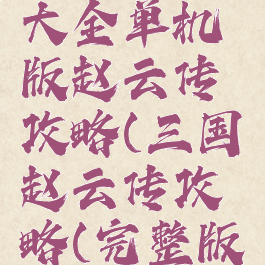 大全单机
版赵云传
攻略(三国
赵云传攻
略(完整版